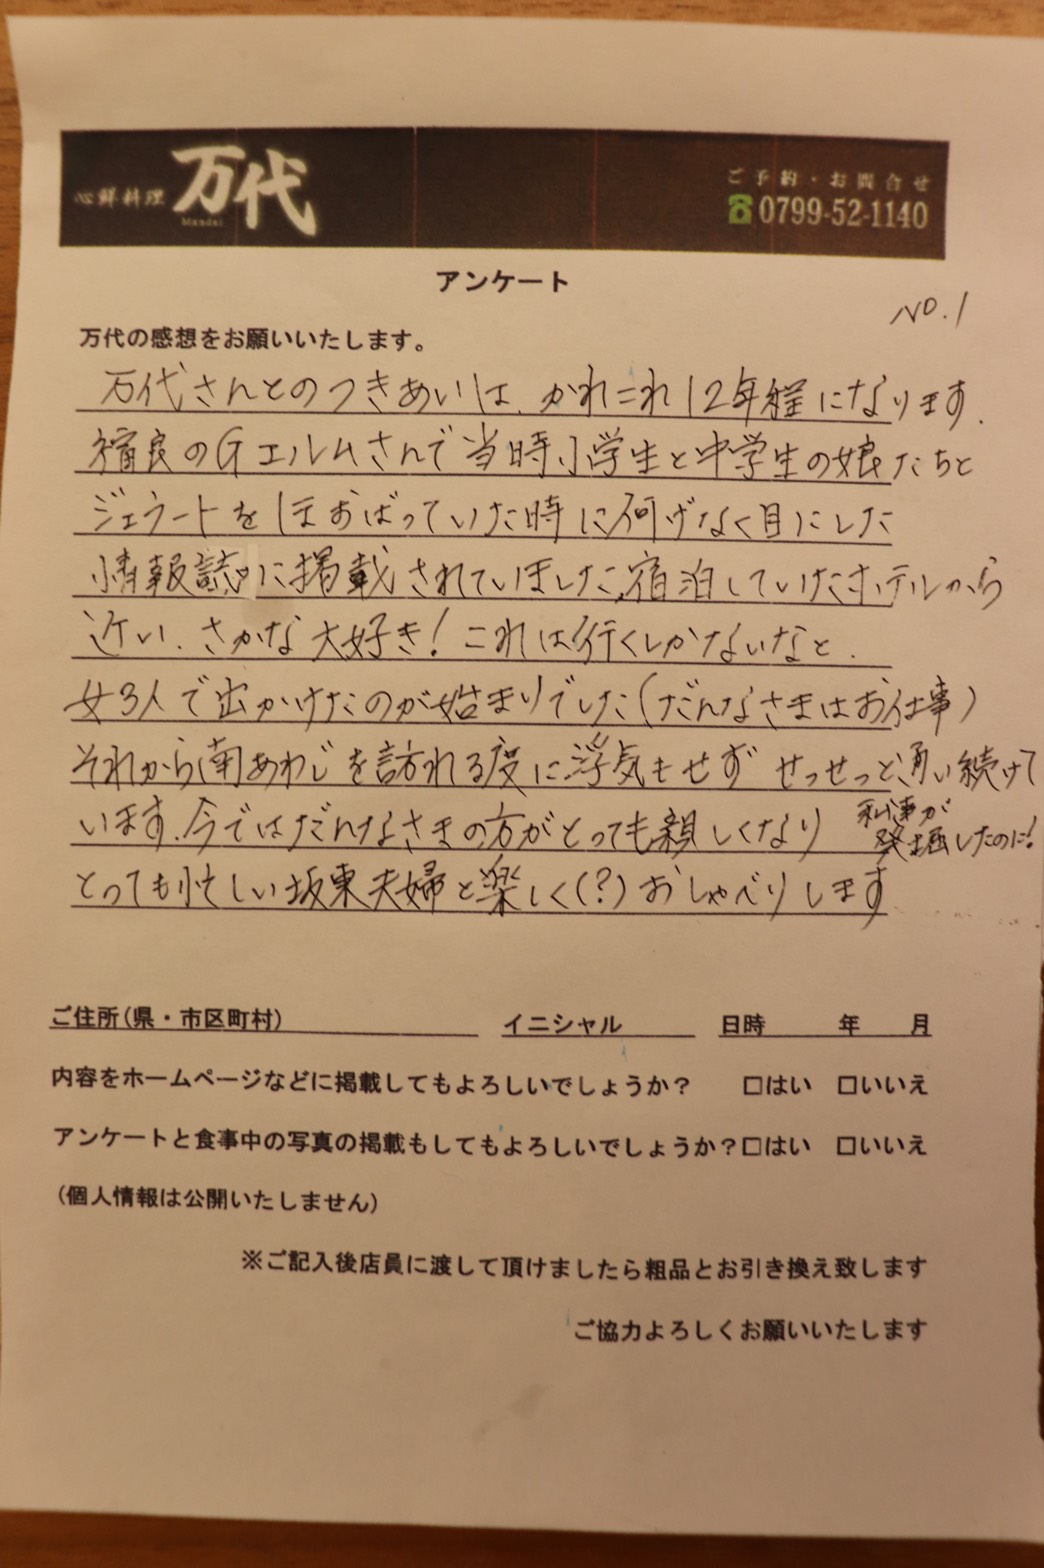 心鮮料理 万代
Mandai
ご予約・お問合せ
0799-52-1140
アンケート
NO.1
万代の感想をお願いいたします。
万代さんとのつきあいは、かれこれ12年程になります。
福良のGエルムさんで当時小学生と中学生の娘たちと
ジェラートをほおばっていた時に何げなく目にした
情報誌に掲載されていました。宿泊していたホテルから
近い、さかな大好き!これは行くしかないなと、
女3人で出かけたのが始まりでした(だんなさまはお仕事)
それから南あわじを訪れる度に浮気もせず せっせっと通い続けて
います。今ではだんなさまの方がとっても親しくなり
私事が
発掘したのに!
とっても忙しい坂東夫婦と楽しく(?)おしゃべりします……
ご住所(県・市区町村) イニシャル 日時 年 月
内容をホームページなどに掲載してもよろしいでしょうか? □はい □いいえ
アンケートと食事中の写真の掲載もしてもよろしいでしょうか?□はい □いいえ
(個人情報は公開いたしません)
※ご記入後店員に渡して頂けましたら粗品とお引き換え致します
ご協力よろしくお願いいたします